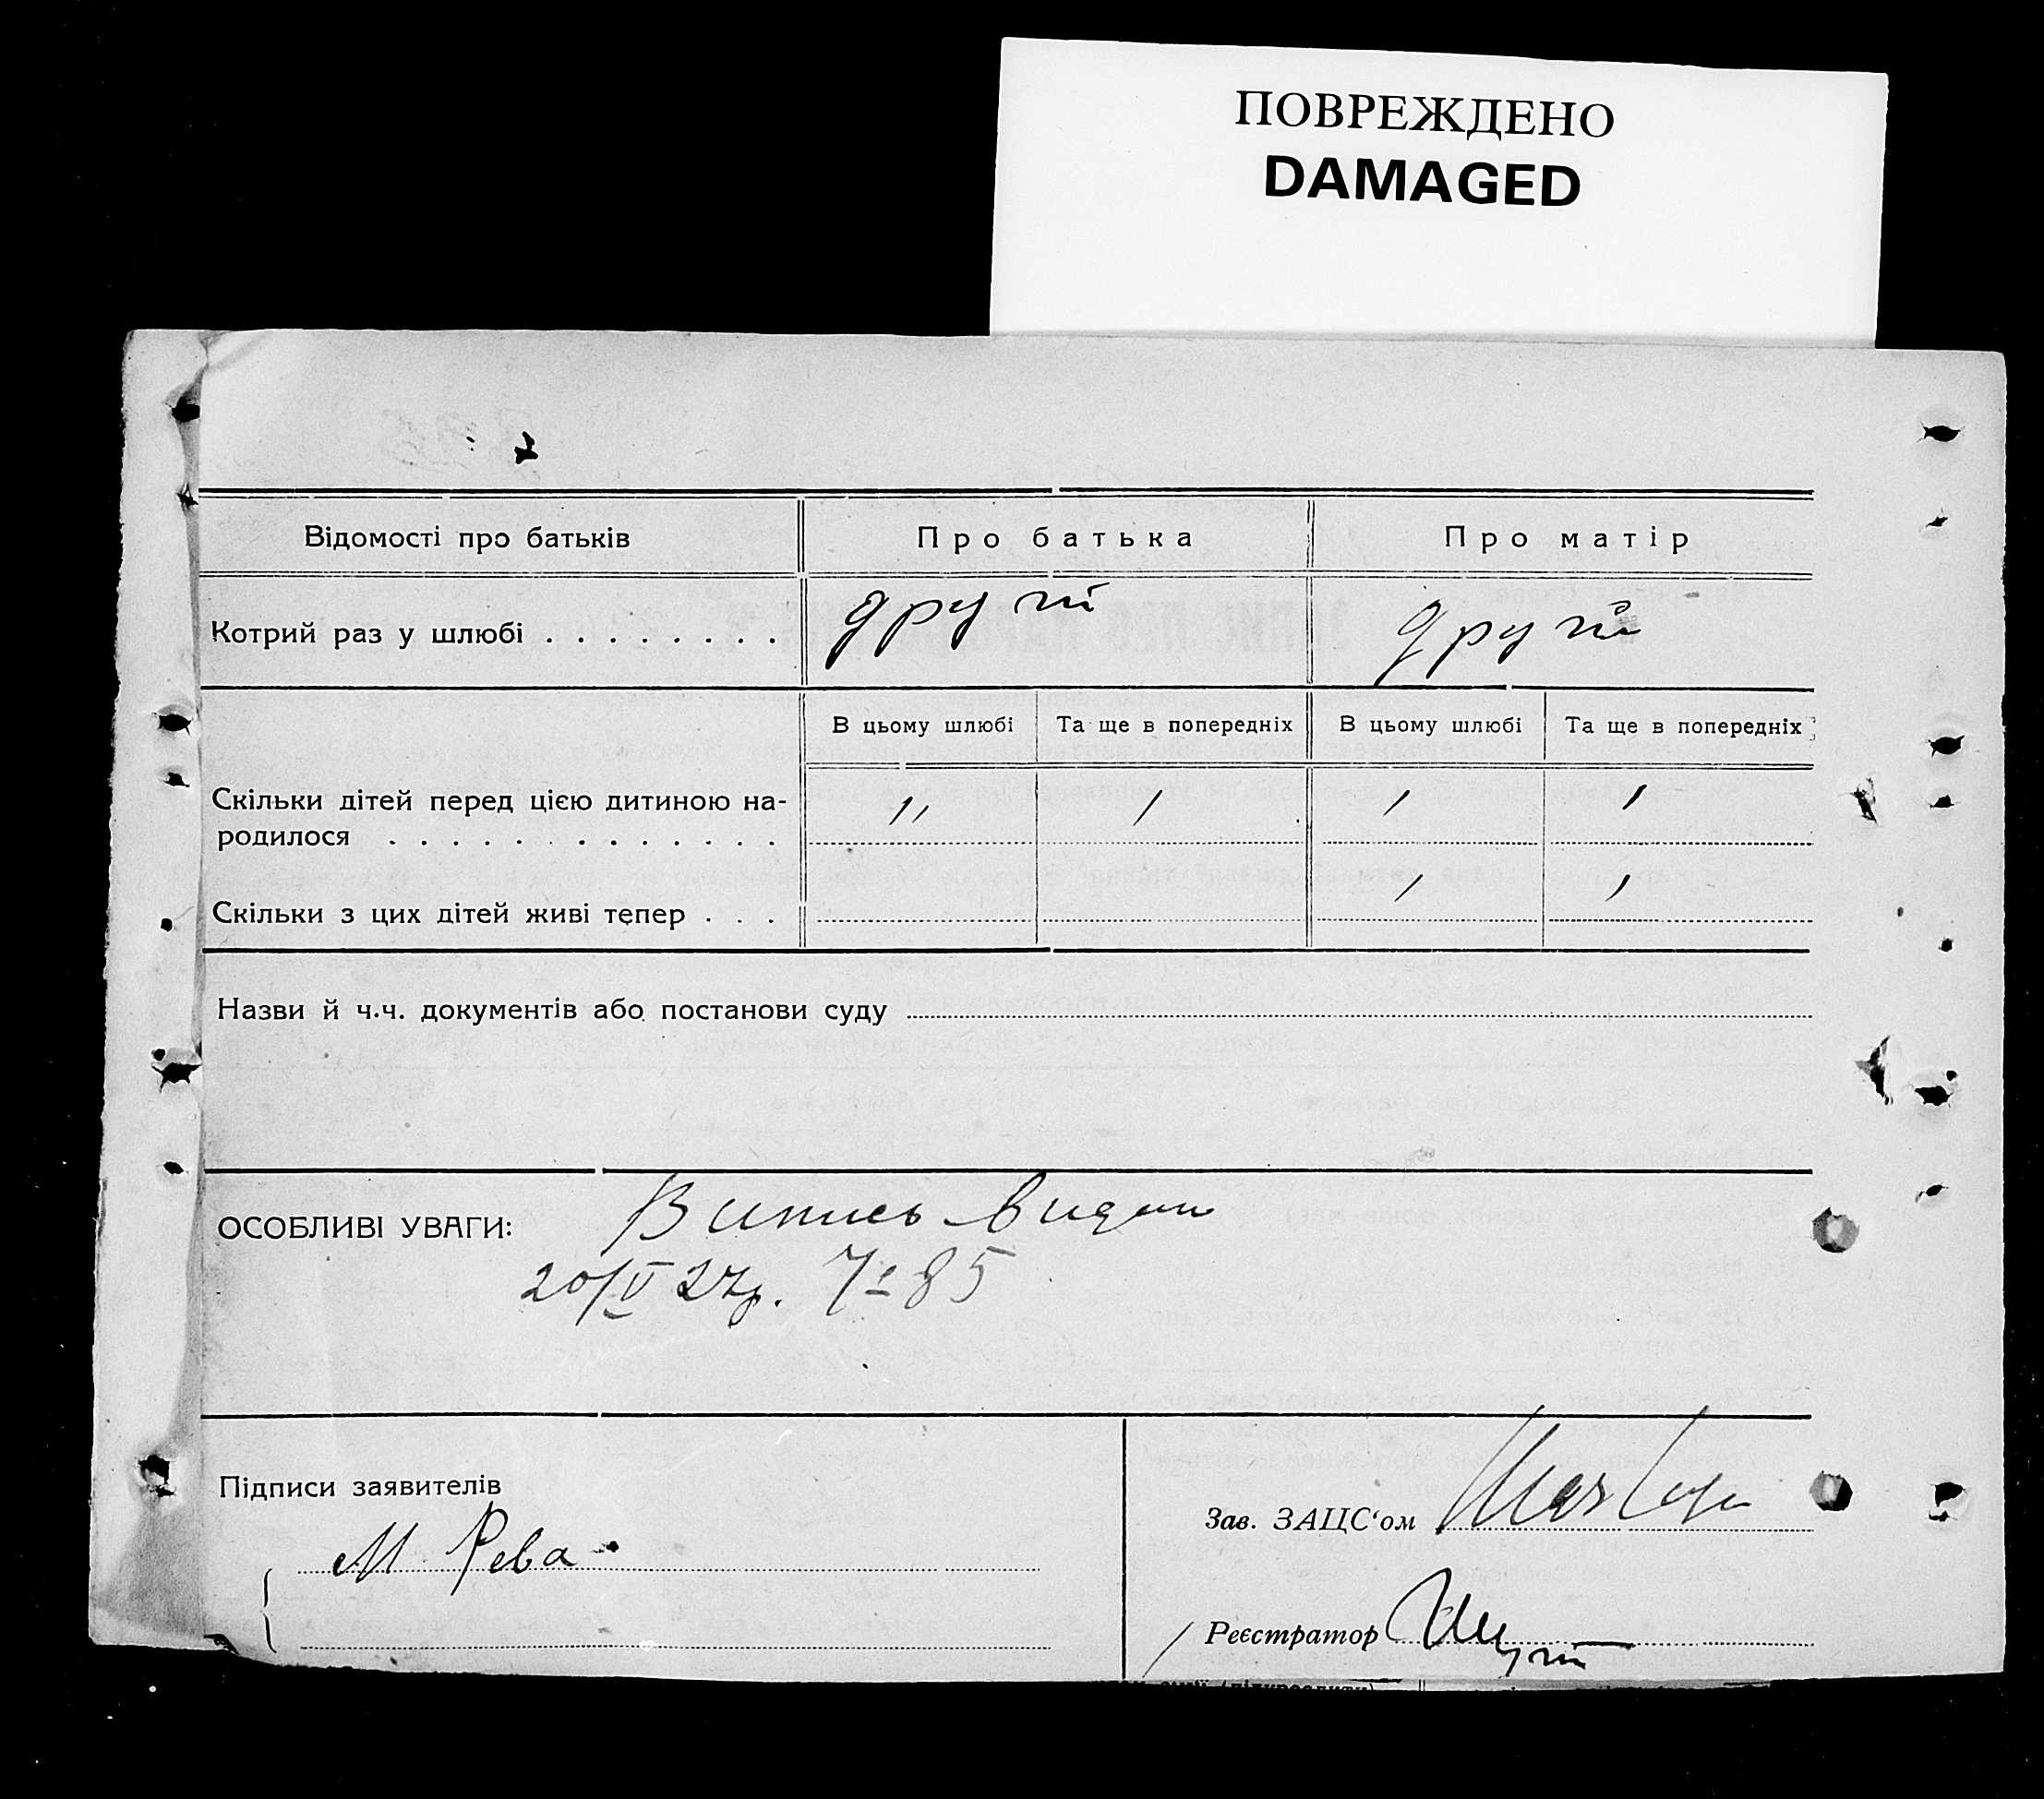 ПОВРЕЖДЕНО
DAMAGED
Відомості про батьків
Про батька
Про матір
Котрий раз у шлюбі
другий
другий
В цьому шлюбі
Та ще в попередніх
В цьому шлюбі
Та ще в попередніх
Скільки дітей перед цією дитиною на-
родилося
11
1
1
1
Скільки з цих дітей живі тепер
1
1
Назви й ч.ч. документів або постанови суду
ОСОБЛИВІ УВАГИ:
Випись видан
20/V 27р. № 85
Підписи заявителів
М Рева
Зав. ЗАЦС‘ом
Реєстратор